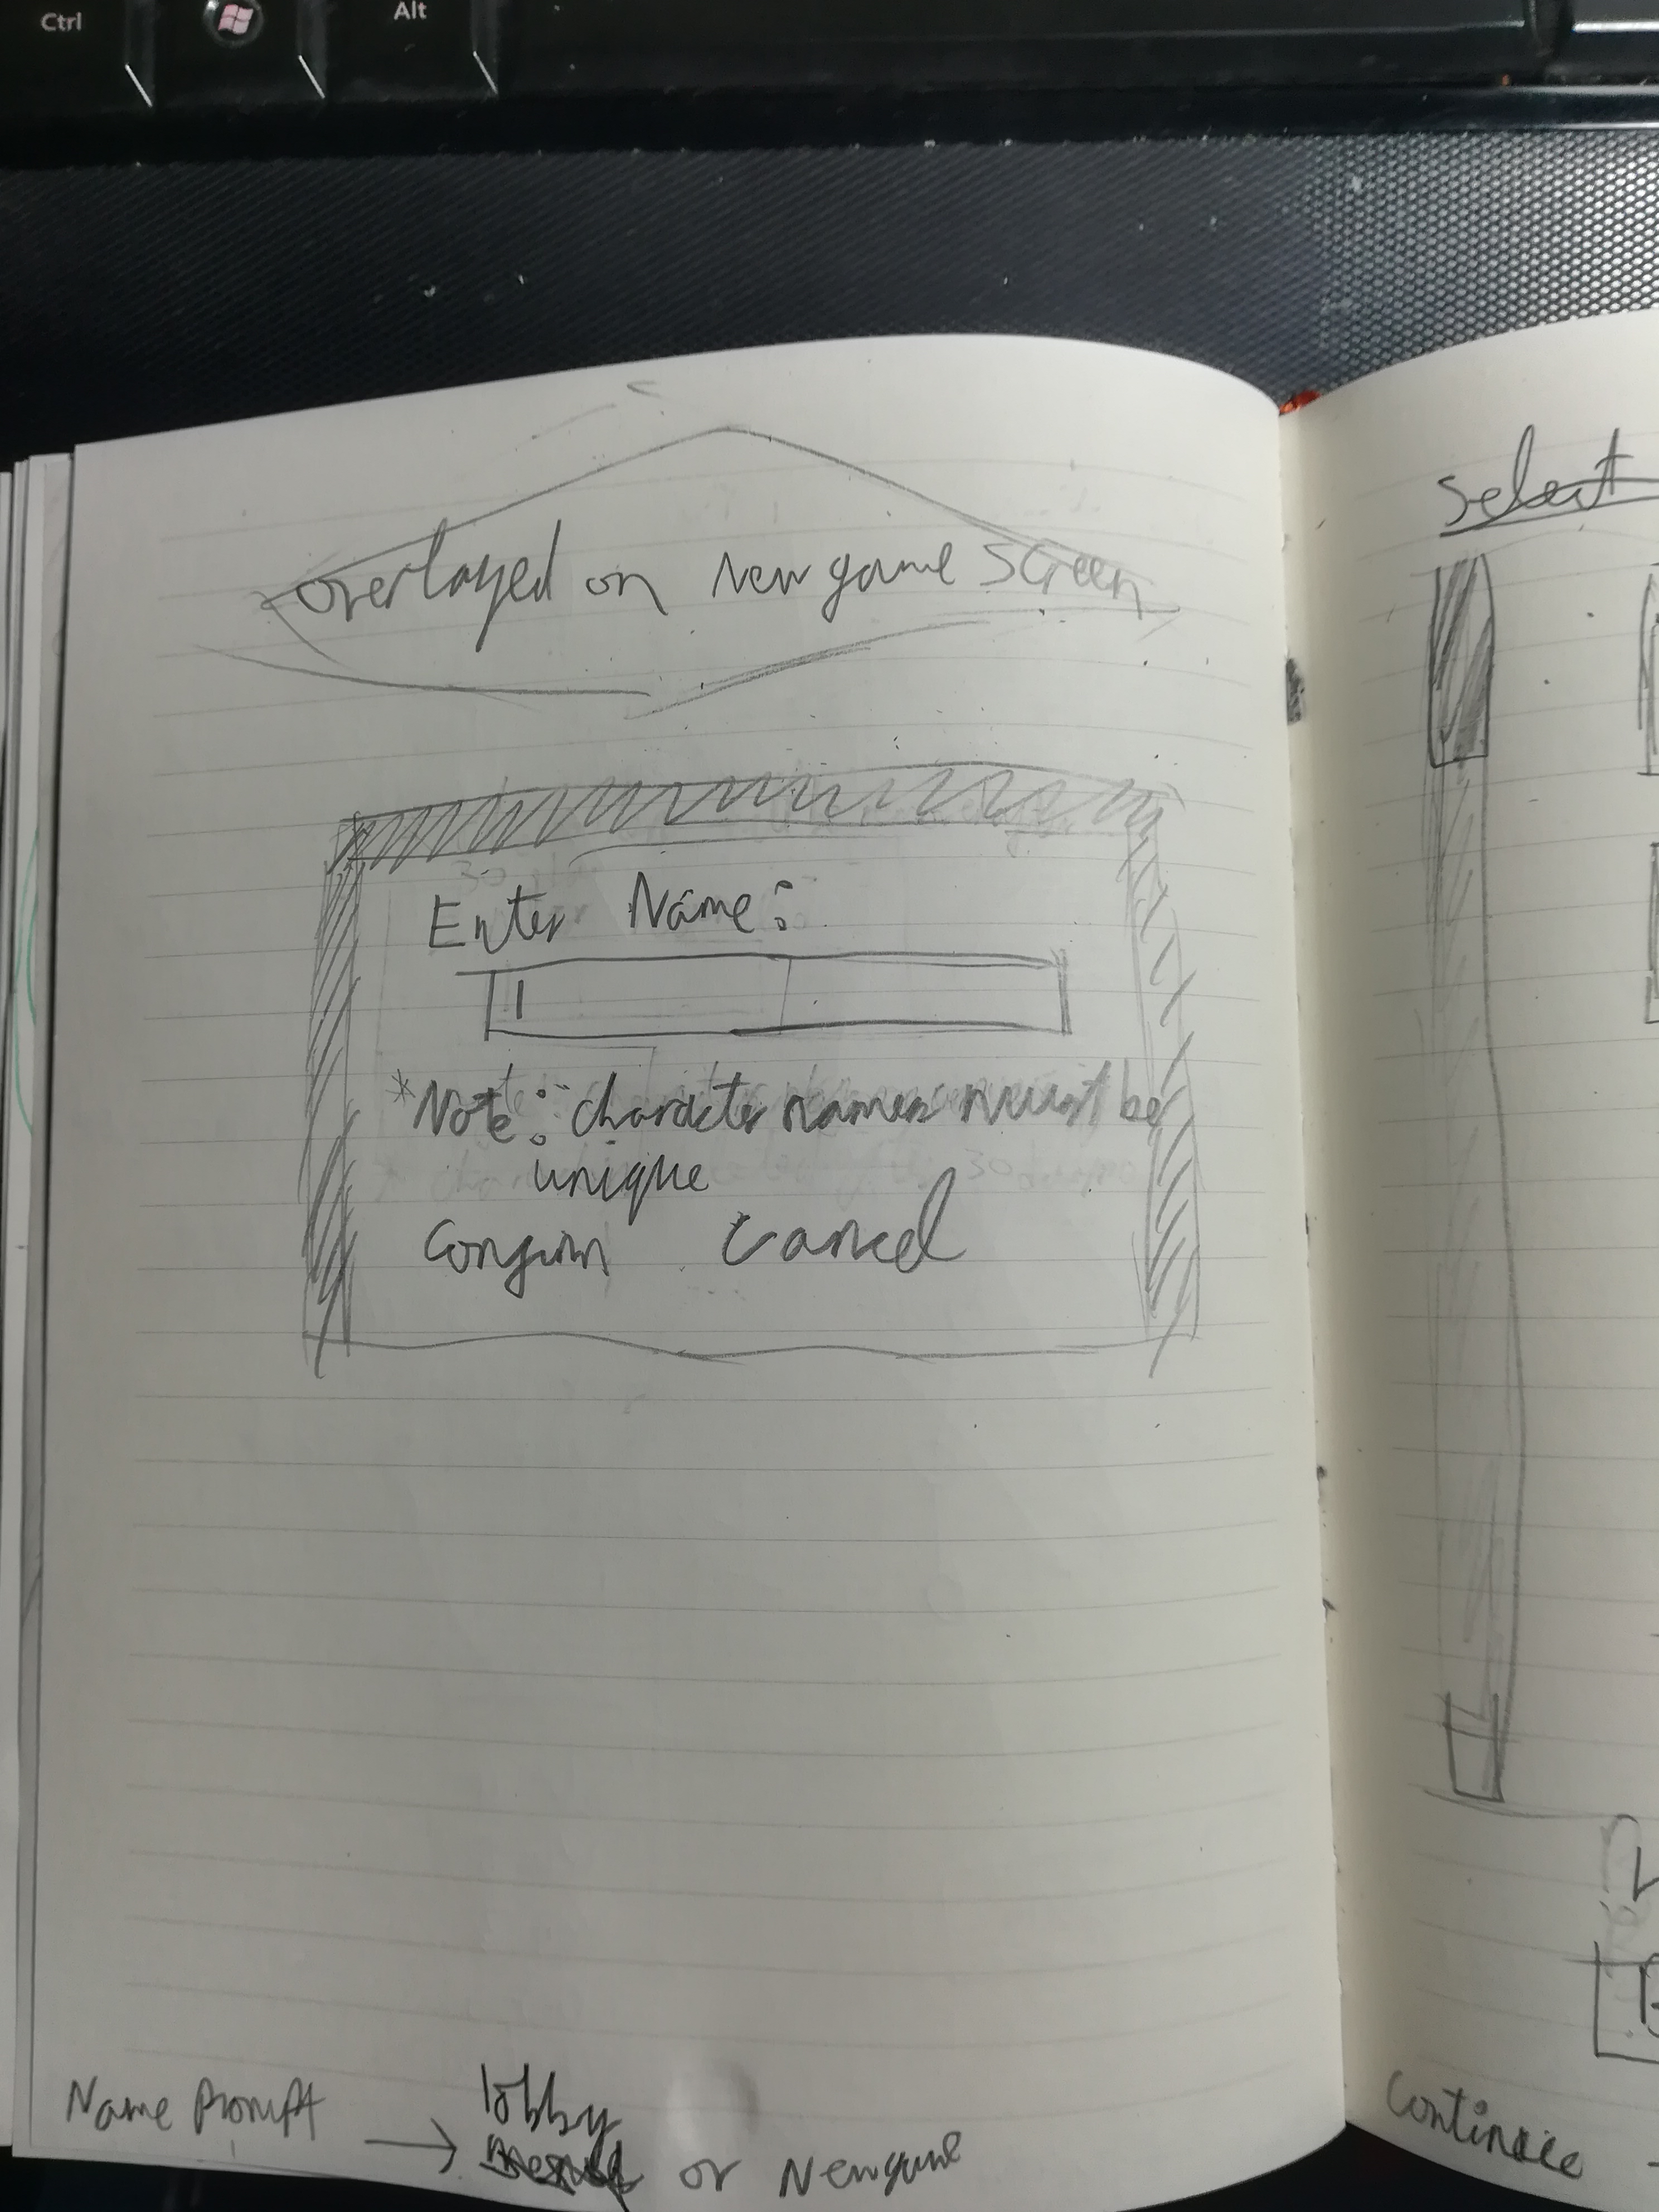 Ctrl
Alt
overlayed on New game screen
Enter Name:
*Note: character names must be
unique
Confirm Cancel
Name Prompt → lobby
or Newgame
Select
Continue